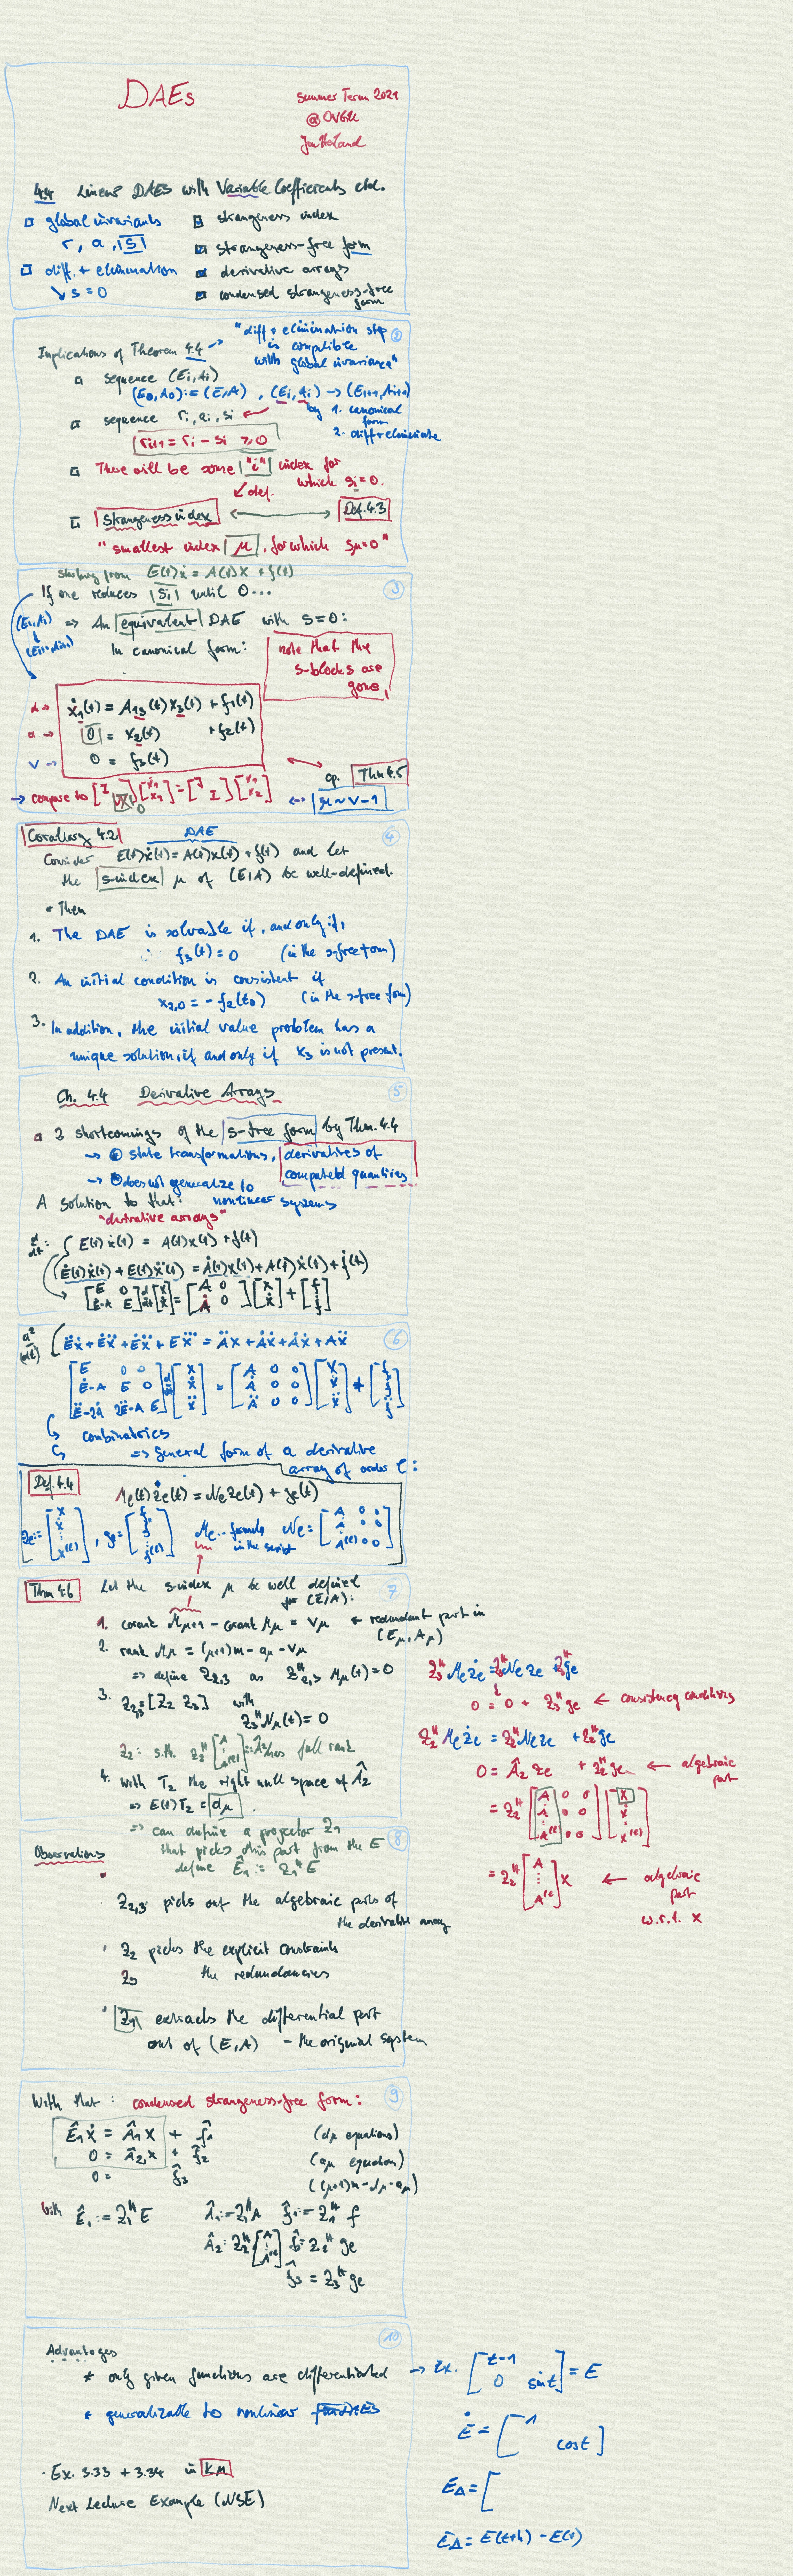 DAEs
Summer Term 2021
@ OVGU
Jan Heiland
4.4 Linear DAEs with Variable Coefficients ctd.
global invariants
r, a, s
diff. + elimination
↘ s = 0
strangeness index
strangeness-free form
derivative arrays
condensed strangeness-free form
2
Implications of Theorem 4.4 → "diff + elimination step
is compatible
with global invariance"
sequence (Ei, Ai)
(E0, A0) := (E, A), (Ei, Ai) → (Ei+1, Ai+1)
by 1. canonical form
2. diff + eliminate
sequence ri, ai, si
ri+1 = ri - si ≥ 0
There will be some "i" index for
which si = 0.
↙ def.
strangeness index ↔ Def. 4.3
"smallest index μ, for which sμ = 0"
3
starting from E(t)ẋ = A(t)x + f(t)
If one reduces si until 0...
(Ei, Ai)
↓
(Ei+1, Ai+1)
=> An equivalent DAE with s = 0:
In canonical form:
note that the
s-blocks are
gone
d → ẋ1(t) = A13(t) x3(t) + f1(t)
a → 0 = x2(t) + f2(t)
v → 0 = f3(t)
cp. Thm 4.5
→ compare to
μ ~ ν-1
4
Corollary 4.2
DAE
Consider E(t)ẋ(t) = A(t)x(t) + f(t) and let
the s-index μ of (E, A) be well-defined.
Then
1. The DAE is solvable if, and only if,
f3(t) = 0 (in the s-free form)
2. An initial condition is consistent if
x2,0 = -f2(t0) (in the s-free form)
3. In addition, the initial value problem has a
unique solution, if and only if x3 is not present.
5
Ch. 4.4 Derivative Arrays
2 shortcomings of the s-free form by Thm. 4.4
→ state transformations, derivatives of
computed quantities
→ does not generalize to
nonlinear systems
A solution to that:
"derivative arrays"
d/dt: E(t)ẋ(t) = A(t)x(t) + f(t)
Ė(t)ẋ(t) + E(t)ẍ(t) = Ȧ(t)x(t) + A(t)ẋ(t) + ḟ(t)
[E 0; Ė-A E] d/dt [x; ẋ] = [A 0; Ȧ 0] [x; ẋ] + [f; ḟ]
6
Ëẋ + Ėẍ + Ėẍ + E x⃛ = Äx + Ȧẋ + Ȧẋ + Aẍ
[E 0 0; Ė-A E 0; Ë-2Ȧ 2Ė-A E] d/dt [x; ẋ; ẍ] = [A 0 0; Ȧ 0 0; Ä 0 0] [x; ẋ; ẍ] + [f; ḟ; f̈]
combinatorics
=> general form of a derivative
array of order ℓ:
Def. 4.4
Mℓ(t)żℓ(t) = Nℓ zℓ(t) + gℓ(t)
zℓ := [x; ẋ; ⋮; x^(ℓ)], gℓ = [f; ḟ; ⋮; f^(ℓ)] Mℓ... formula in the script Nℓ = [A 0 0; Ȧ 0 0; A^(ℓ) 0 0]
7
Thm 4.6
Let the s-index μ be well defined
for (E, A):
1. corank Mμ+1 - corank Mμ = vμ ← redundant part in
(Eμ, Aμ)
2. rank Mμ = (μ+1)m - aμ - vμ
=> define Z2,3 as Z2,3^H Mμ(t) = 0
3. Z2,3 [Z2 Z3] with
Z3^H Nμ(t) = 0
has full rank
4. with T2 the right null space of Â2
=> E(t)T2 = dμ
=> can define a projector Z1
that picks this part from the E
define Ê1 := Z1^H E
Z3^H Mℓ żℓ = Z3^H Nℓ zℓ + Z3^H gℓ
0 = 0 + Z3^H gℓ ← consistency conditions
Z2^H Mℓ żℓ = Z2^H Nℓ zℓ + Z2^H gℓ
0 = Â2 zℓ + Z2^H gℓ ← algebraic
part
= Z2^H [A 0 0; Ȧ 0 0; ⋮; A^(ℓ) 0 0] [x; ẋ; ⋮; x^(ℓ)]
= Z2^H [A; ⋮; A^(ℓ)] x ← algebraic
part
w.r.t. x
8
Observations
Z2,3 picks out the algebraic parts of
the derivative array
Z2 picks the explicit constraints
Z3 the redundancies
Z1 extracts the differential part
out of (E, A) - the original system
9
With that: condensed strangeness-free form:
Ê1 ẋ = Â1 x + f̂1 (dμ equations)
0 = Â2 x + f̂2 (aμ equation)
0 = f̂3 ((μ+1)m - dμ - aμ)
with Ê1 := Z1^H E Â1 := Z1^H A f̂1 := Z1^H f
Â2 : Z2^H [A; ⋮; A^(ℓ)] f̂2 = Z2^H gℓ
f̂3 = Z3^H gℓ
10
Advantages
* only given functions are differentiated → Ex. [t-1; 0 sin t] = E
* generalizable to nonlinear DAEs
Ė = [1; cos t]
· Ex. 3.33 + 3.34 in KM
EΔ = [
Next Lecture Example (NSE)
EΔ = E(t+h) - E(t)